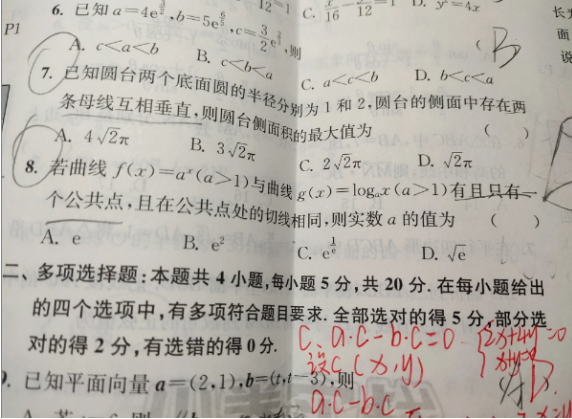 6. 已知 a=4e^{}, b=5e^{}, c=\frac{3}{2}e^{}, 则
A. c<a<b
B. c<b<a
C. a<c<b
D. b<c<a
C. \frac{x}{16} \frac{}{12}=1
D. y²=4x
P1
7. 已知圆台两个底面圆的半径分别为 1 和 2, 圆台的侧面中存在两
条母线互相垂直, 则圆台侧面积的最大值为 ( )
A. 4√2π
B. 3√2π
C. 2√2π
D. √2π
8. 若曲线 f(x)=aˣ(a>1)与曲线 g(x)=logₐx(a>1)有且只有一
个公共点, 且在公共点处的切线相同, 则实数 a 的值为 ( )
A. e
B. e²
C. e^{\frac{1}{e}}
D. √e
二、多项选择题: 本题共 4 小题, 每小题 5 分, 共 20 分. 在每小题给出
的四个选项中, 有多项符合题目要求. 全部选对的得 5 分, 部分选
对的得 2 分, 有选错的得 0 分.
C、a·c-b·c=0
设C(x,y)
a·c-b·c
. 已知平面向量 a=(2,1), b=(t,t-3), 则